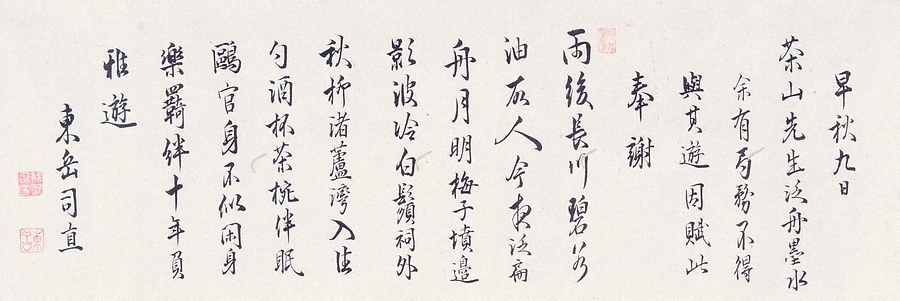 早秋九日
茶山先生泛舟墨水
余有局務不得
與其遊因賦此
奉謝
雨後長川碧若
油故人今夜泛扁
舟月明梅子墳邊
影波冷白鬚祠外
秋柳渚蘆灣入佳
勺酒杯茶椀伴眠
鷗官身不似閑身
樂羈絆十年負
雅遊
東岳司直